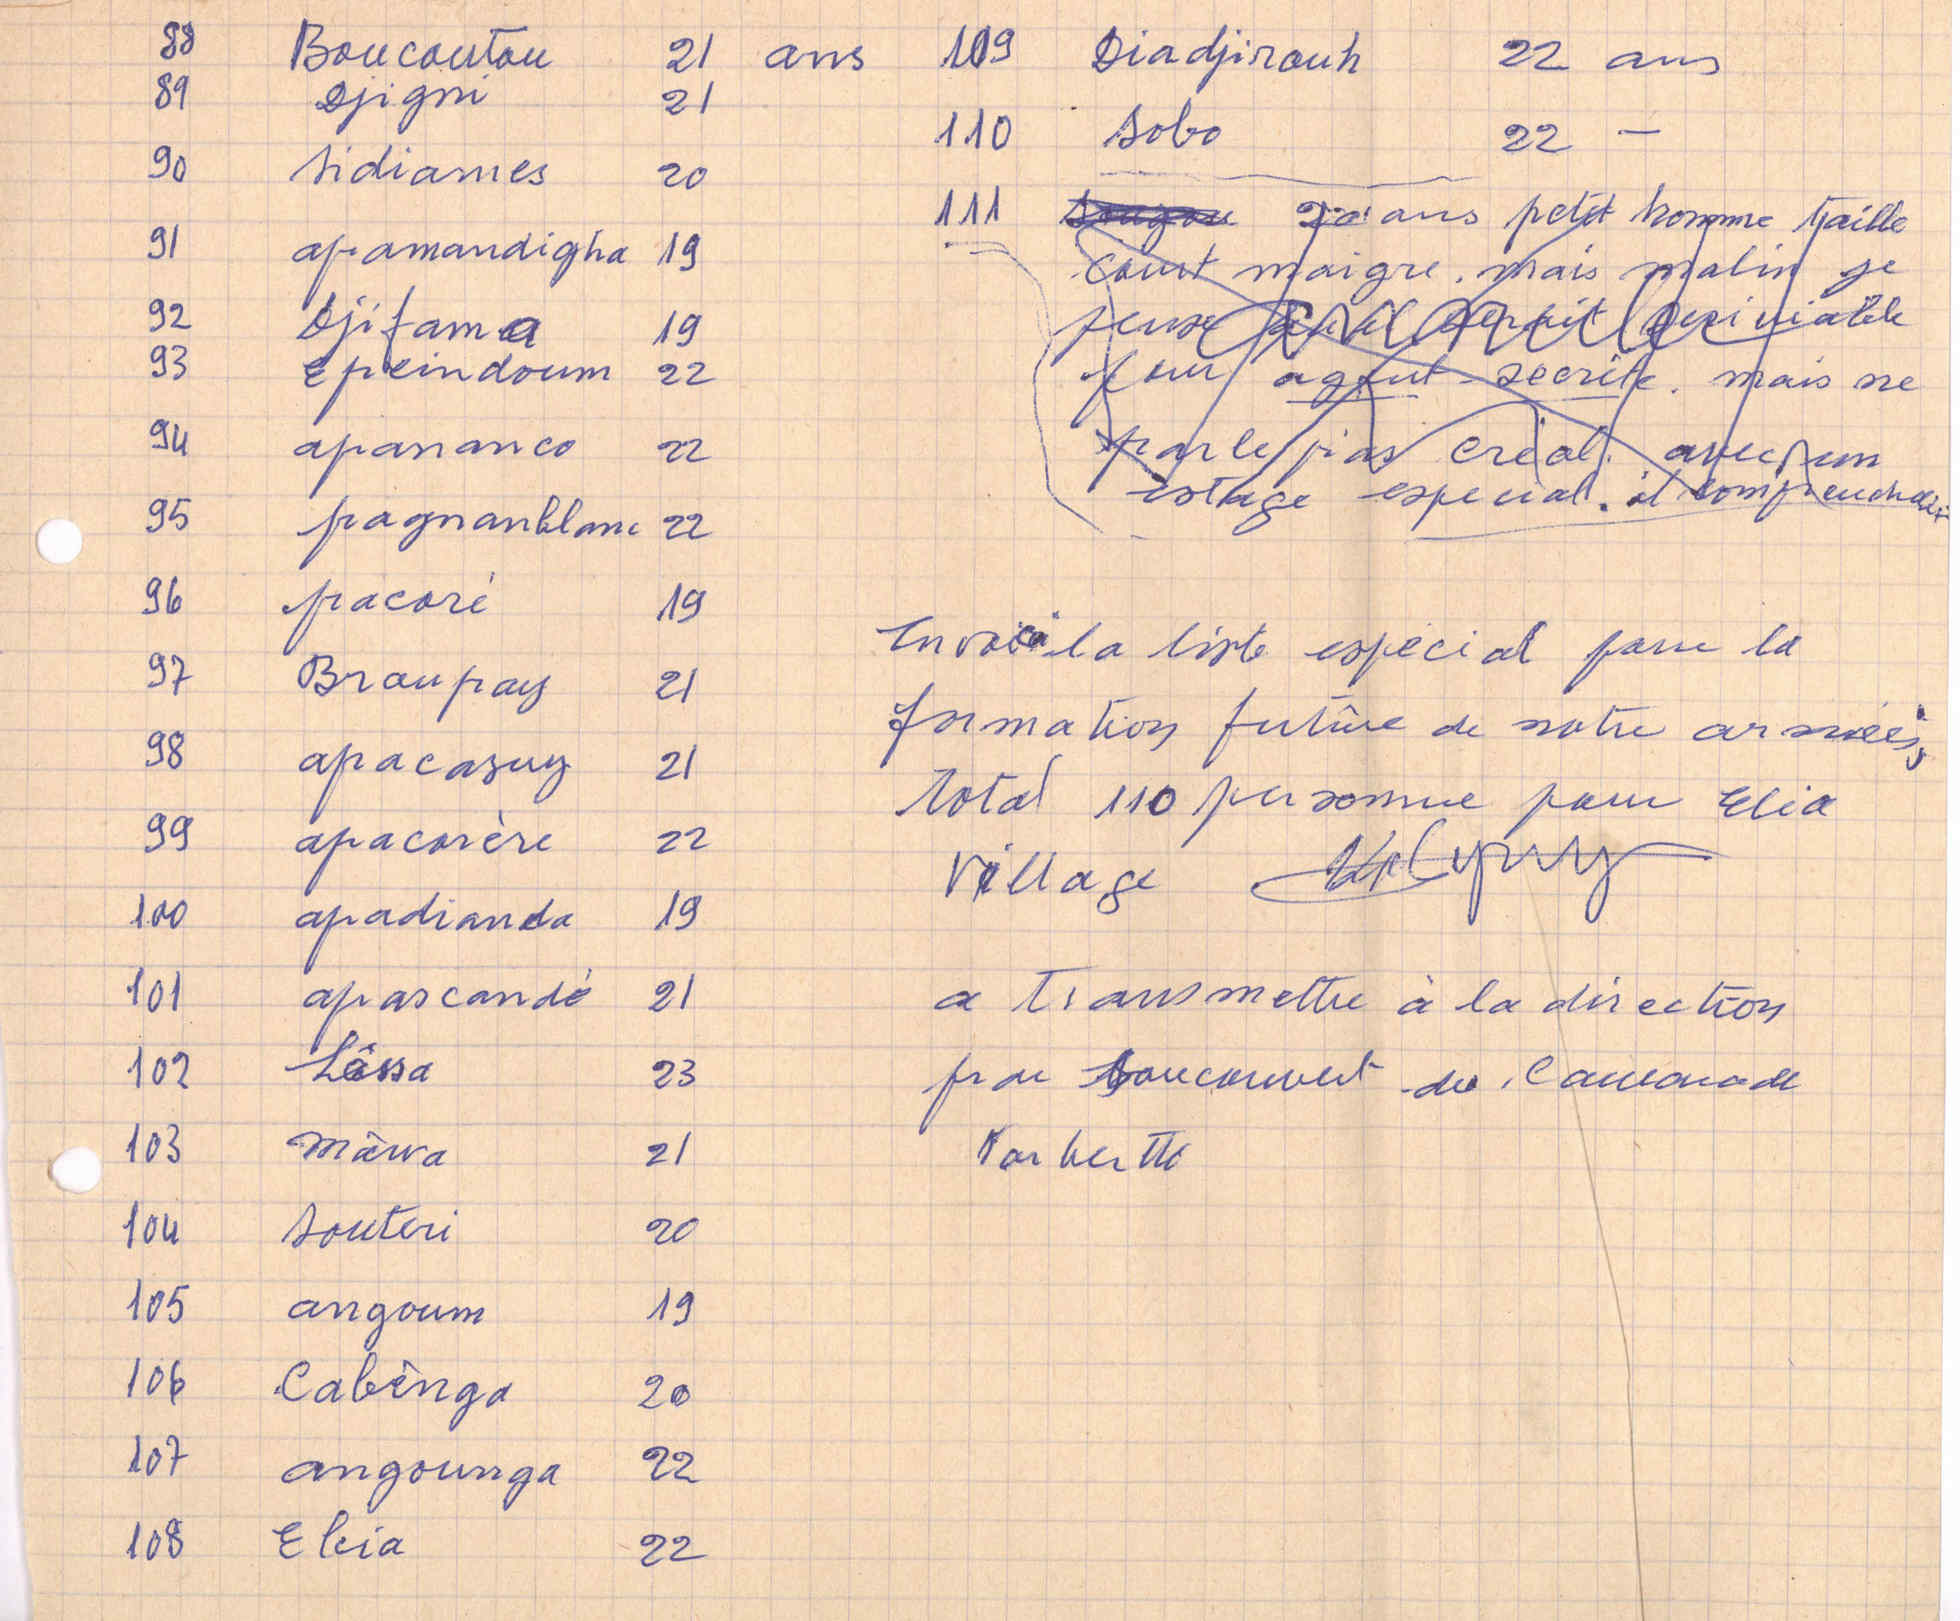 88 Boucoutou 21 ans
89 Djigni 21
90 Sidiames 20
91 apamandigha 19
92 Djifama 19
93 Epeindoum 22
94 apananco 22
95 pagnanblanc 22
96 pacoré 19
97 Braupay 21
98 apacasuy 21
99 apacorère 22
100 apadianda 19
101 apascandé 21
102 Lâssa 23
103 mârva 21
104 Souteri 20
105 angoum 19
106 Cabênga 20
107 angounga 22
108 Eleia 22
109 Diadjirouh 22 ans
110 Sobo 22 —
111 ans petit homme taille
court maigre. mais malin je
pense serait
pour agent-secrète. mais ne
parle pas créol. avec un
estage especial. il comprendrait
Envoici la liste espécial pour la
formation futûre de notre armée,
Total 110 personne pour Elia
Village
a Transmettre à la direction
par Soucouvert du Camarade